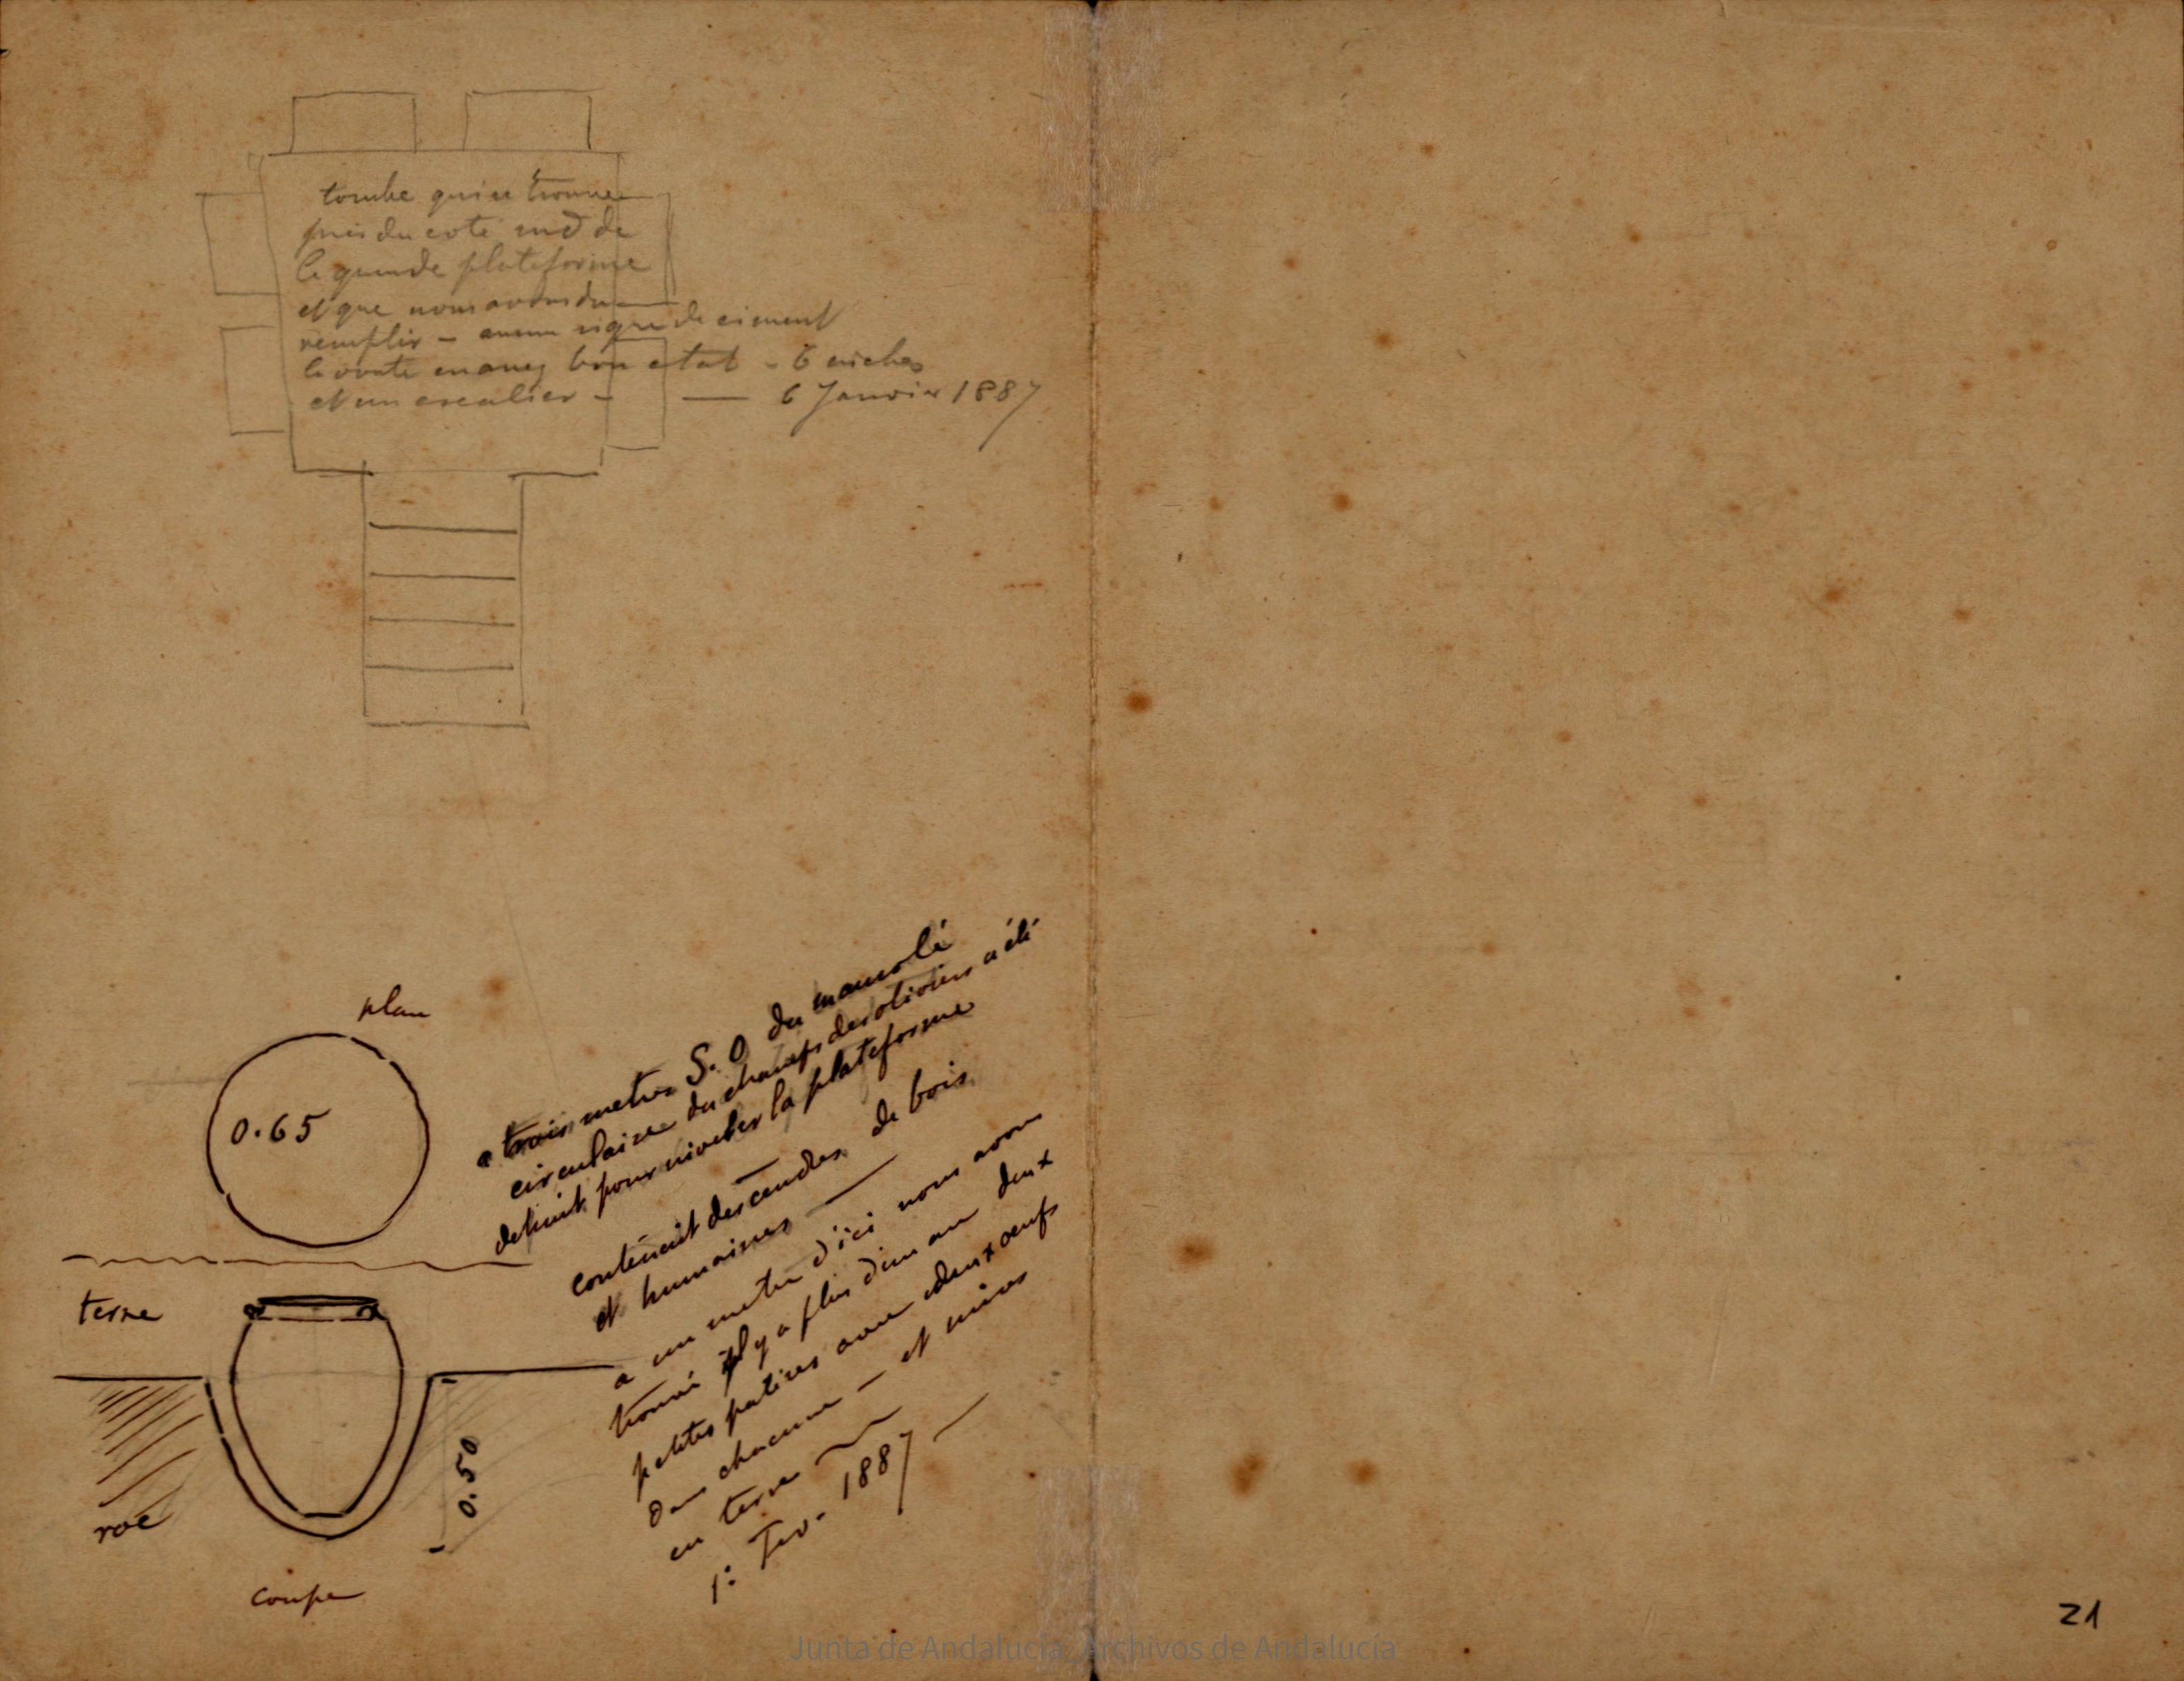 tombe qui se trouve
pres du coté sud de
la grande plateforme
et que nous avons du
remplir – aucun signe de ciment
la voute en assez bon etat – 6 niches
et un escalier – — 6 Janvier 1887
a trois metres S. O. du mausolé
circulaire du champs des oliviers a été
detruit pour niveler la plateforme
contenait des cendres de bois
et humaines —
a un metre d'ici nous avons
trouvé il y a plus d'un an deux
petites patires avec deux oeufs
dans chacune – et
en terre —
1º Fev. 1887 —
plan
0.65
terre
roc
0.50
coupe
21
Junta de Andalucía. Archivos de Andalucía